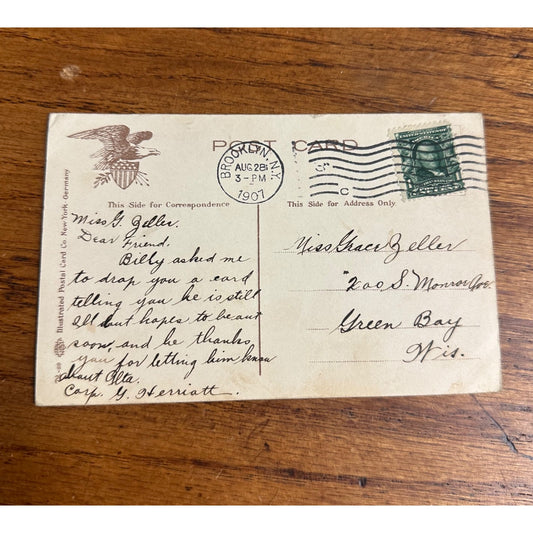 POST CARD
BROOKLYN, N.Y.
AUG 28
3-PM
1907
C
This Side for Correspondence
This Side for Address Only.
Illustrated Postal Card Co. New York. Germany
Miss G. Zeller.
Dear Friend.
Billy asked me
to drop you a card
telling you he is still
Ill but hopes to be out
soon, and he thanks
you for letting him know
about Olta.
Corp. G. Herriott.
Miss Grace Zeller
200 S. Monroe Ave.
Green Bay
Wis.